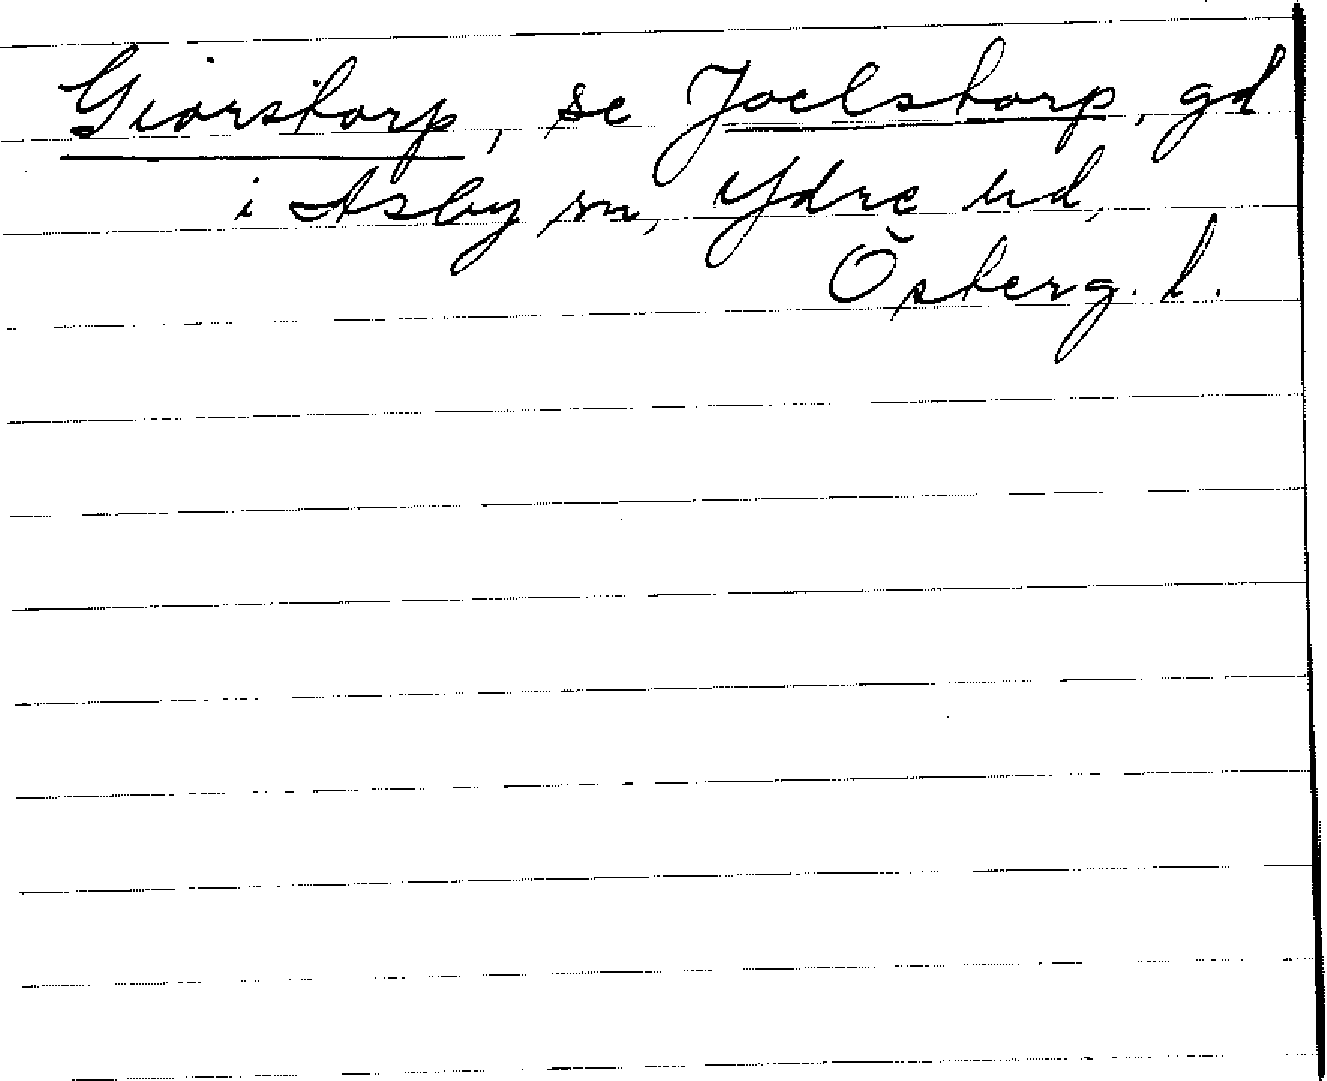 Giorstorp, se Joelstorp, gd
i Asby sn, Ydre hd,
Österg. l.